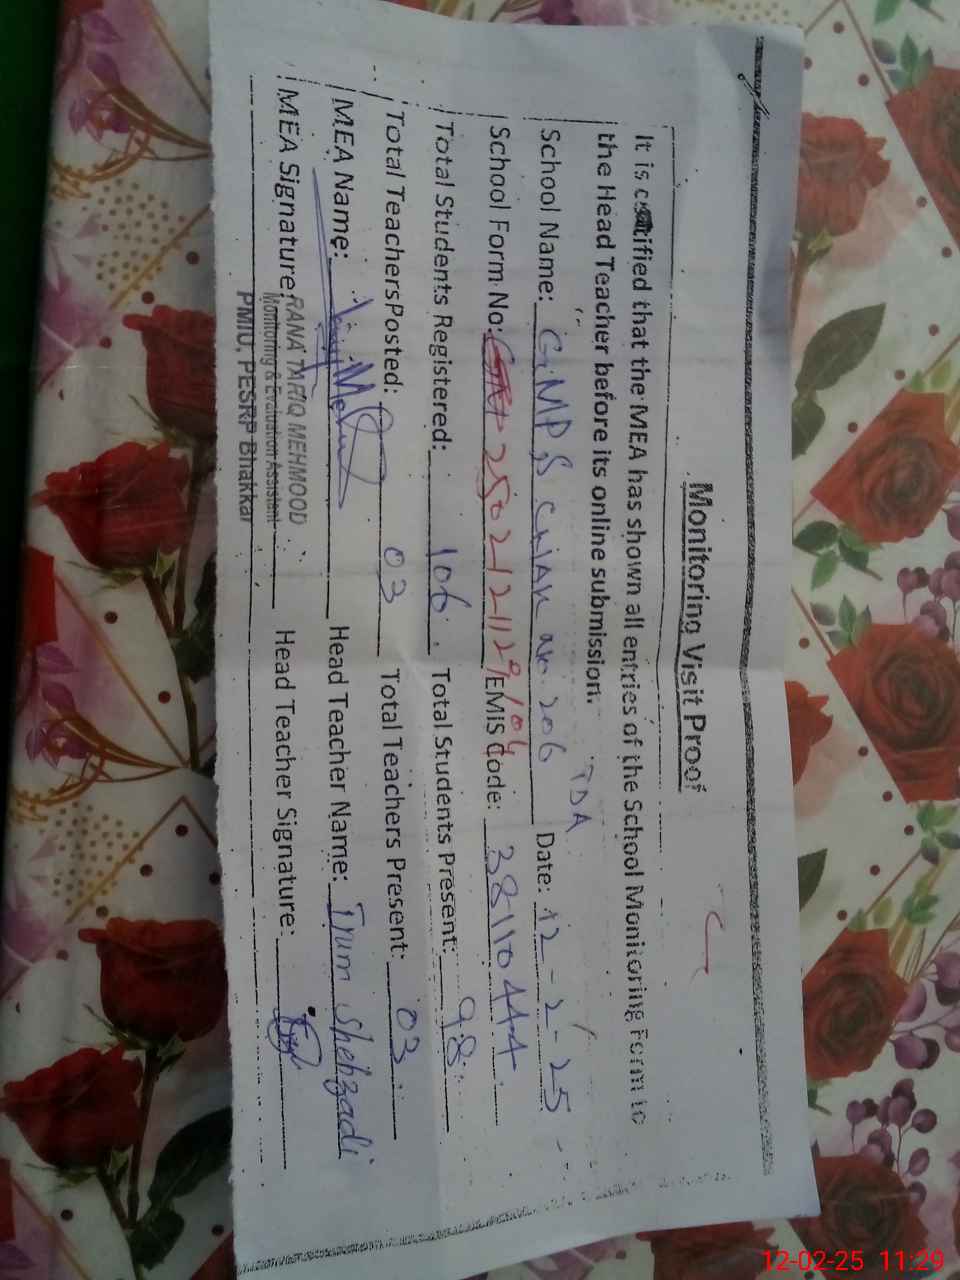 Monitoring Visit Proof
It is certified that the MEA has shown all entries of the School Monitoring Form to
the Head Teacher before its online submission.
TDA
School Name: GMPS Chak no. 206 Date: 12-2-25
School Form No: 2502121129/04 EMIS Code: 38110444
Total Students Registered: 106. Total Students Present: 98
Total TeachersPosted: 03 Total Teachers Present: 03
MEA Name: Head Teacher Name: Irum Shehzadi
MEA Signature: Head Teacher Signature:
RANA TARIQ MEHMOOD
Monitoring & Evaluation Assistant
PMIU, PESRP Bhakkar
12-02-25 11:29